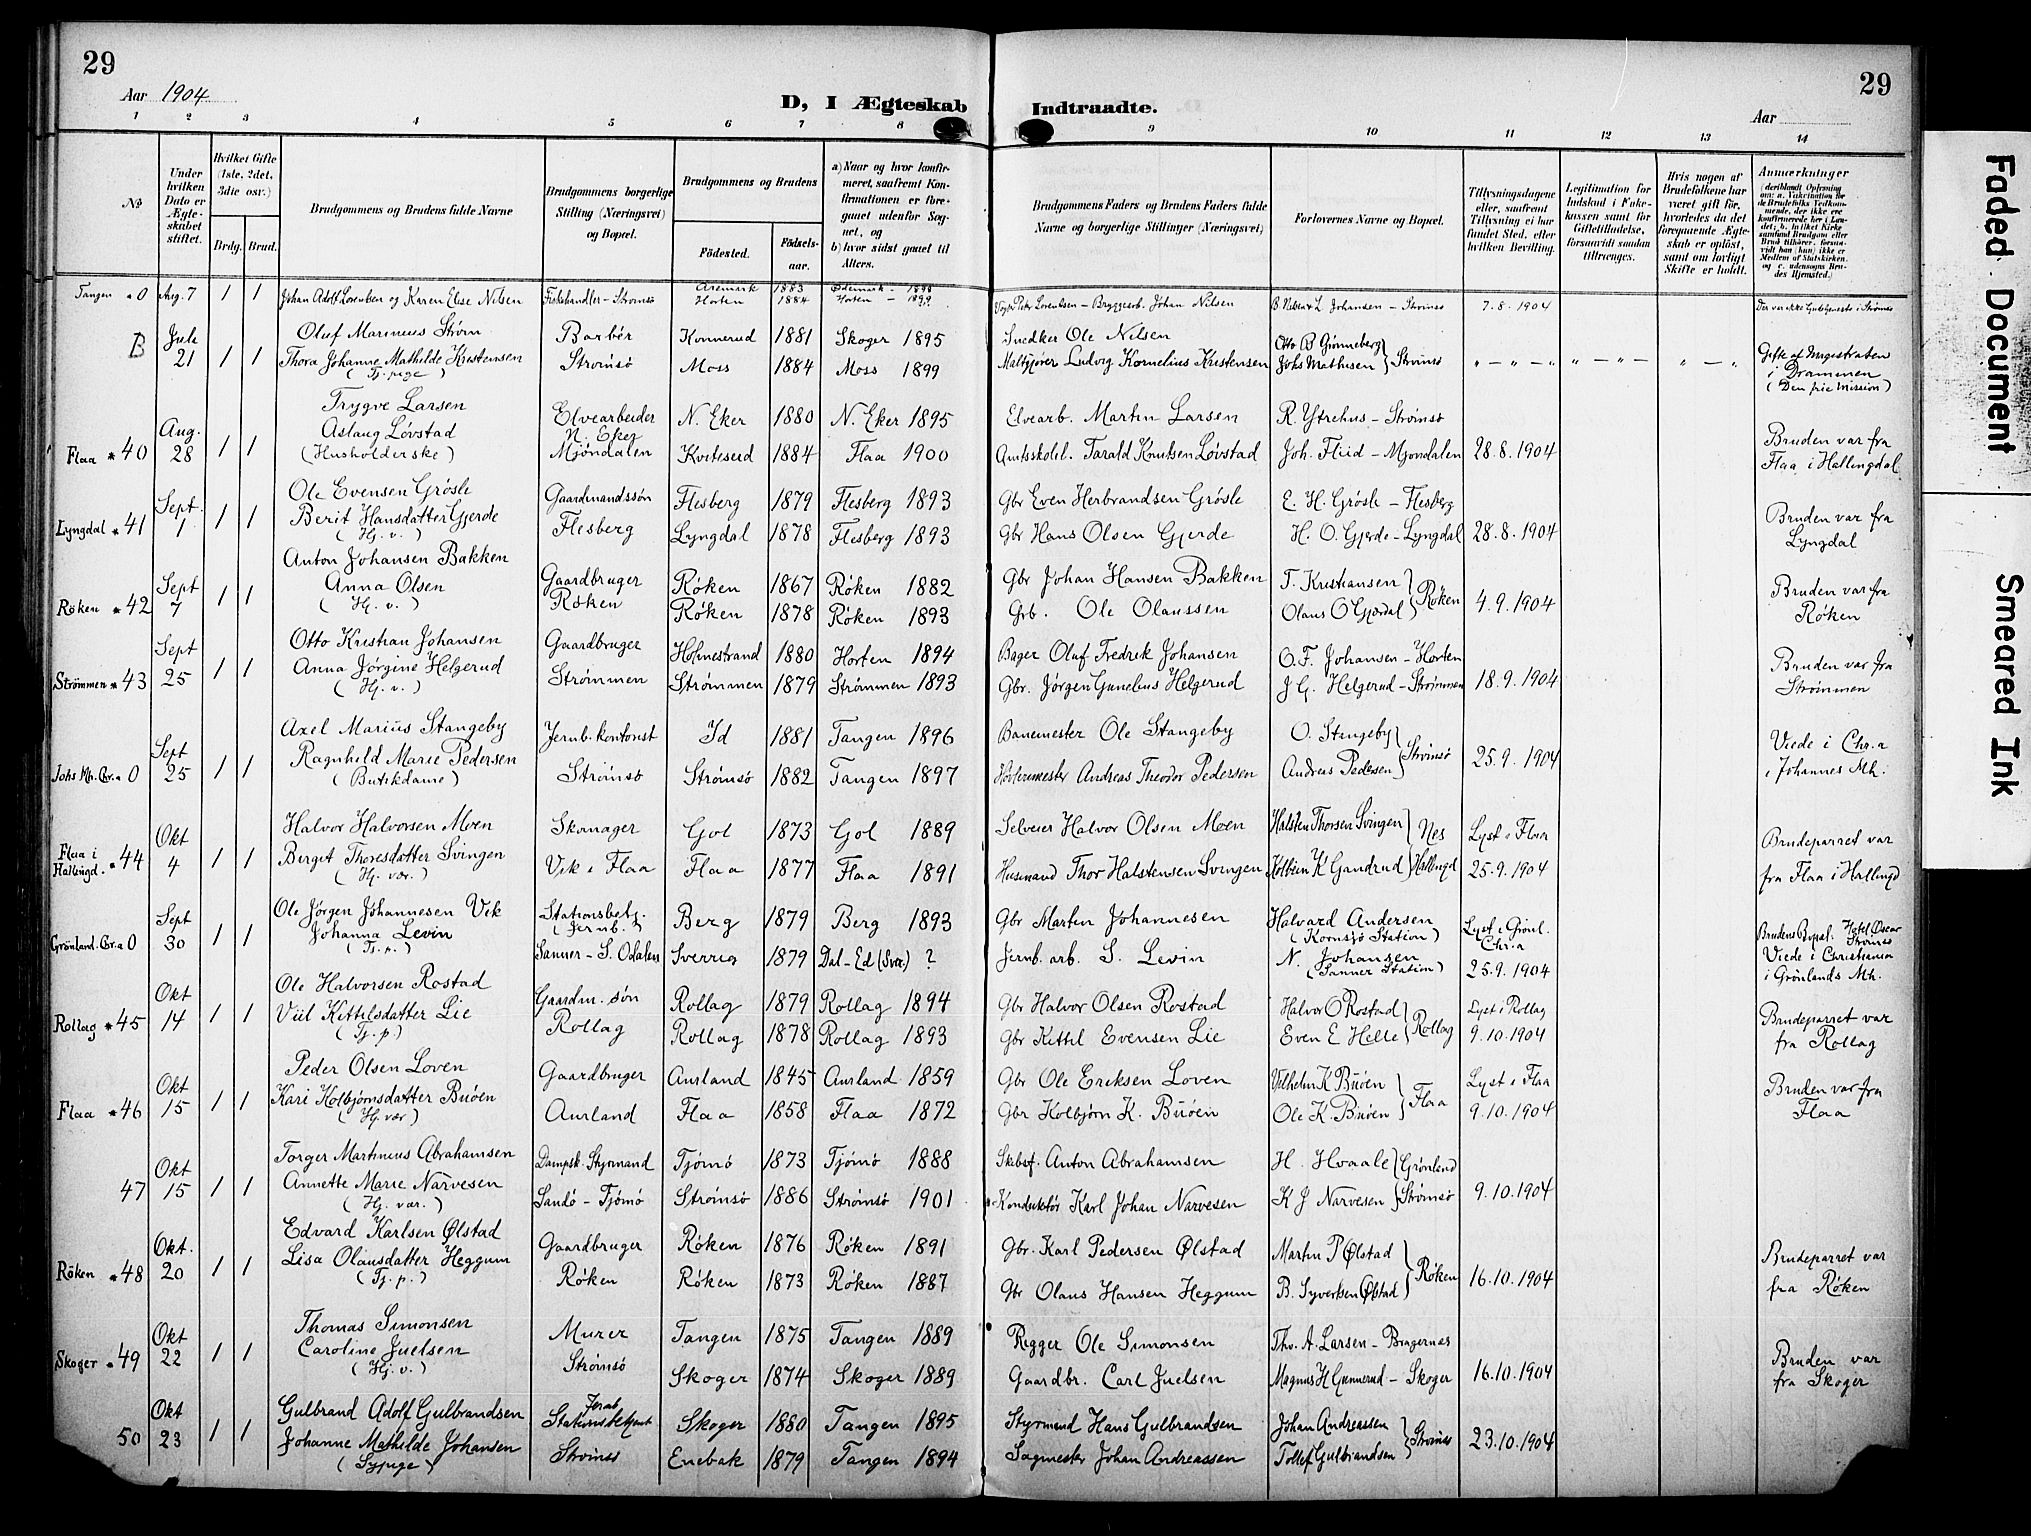 29
29
Aar 1904
D, I Ægteskab Indtraadte.
Aar
1 2 3 4 5 6 7 8 9 10 11 12 13 14
No
Under hvilken Dato er Ægteskabet stiftet.
Hvilket Gifte (1ste, 2det, 3die osv.)
Brdg. Brud.
Brudgommens og Brudens fulde Navne
Brudgommens borgerlige Stilling (Næringsvei) og Bopæl.
Brudgommens og Brudens
Födested. Födselsaar.
a) Naar og hvor konfirmeret, saafremt Konfirmationen er foregaaet udenfor Sognet, og
b) hvor sidst gaaet til Alters.
Brudgommens Faders og Brudens Faders fulde Navne og borgerlige Stillinger (Næringsvei)
Forlovernes Navne og Bopæl.
Tillysningsdagene eller, saafremt Tillysning ei har fundet Sted, efter hvilken Bevilling.
Legitimation for Indskud i Enkekassen samt for Giftetilladelse, forsaavidt saadan tiltrænges.
Hvis nogen af Brudefolkene har været gift för, hvorledes da det foregaaende Ægteskab er oplöst, samt om lovligt Skifte er holdt.
Anmærkninger
Tangen 0 Aug. 7 1 1 Johan Adolf Lorentsen og Karen Elise Nilsen Fiskehandler - Strømsö Aremark 1883 1898
Horten 1884 Horten - 1899 Peder Lorentsen - Bryggearb. Johan Nilsen Johansen - Strømsö 7.8.1904
B Juli 21 1 1 Oluf Marinius Strøm Barbér Konnerud 1881 Skoger 1895 Snedker Ole Nilsen Otto B Grønneberg
Thora Johanne Mathilde Kristensen Strømsö Moss 1884 Moss 1899 Maltgjører Ludvig Kornelius Kristensen Johs Mathisen } Strömsö " — " — " " — " — " " — " Gifte af Magistraten
(Tj. pige) i Drammen
(Den frie Mission)
Flaa 40 Aug. 28 1 1 Trygve Larsen Elvearbeider N. Eker 1880 N. Eker 1895 Elvearb. Martin Larsen R. Ytrehus - Strömsö
Aslaug Lövstad N. Eker Bruden var fra
(Husholderske) Mjöndalen Kviteseid 1884 Flaa 1900 Amtsskolel. Tarald Knutsen Lövstad Joh. Fliid - Mjöndalen 28.8.1904 Flaa i Hallingdal
Lyngdal 41 Sept. 1 1 1 Ole Evensen Grösle Gaardmandssön Flesberg 1879 Flesberg 1893 Gbr Even Herbrandsen Grösle E. H. Grösle - Flesberg
Berit Hansdatter Gjerde Flesberg Lyngdal 1878 Flesberg 1893 Gbr Hans Olsen Gjerde H. O. Gjerde - Lyngdal 28.8.1904 Bruden var fra
(Hj. v.) Lyngdal
Röken 42 Sept 7 1 1 Anton Johansen Bakken Gaardbruger Röken 1867 Röken 1882 Gbr Johan Hansen Bakken T. Kristiansen
Anna Olsen Röken Röken 1878 Röken 1893 Grb. Ole Olaussen Olaus O Gjerdal } Röken 4.9.1904 Bruden var fra
(Hj. v.) Röken
Strömmen 43 Sept 25 1 1 Otto Kristian Johansen Gaardbruger Holmestrand 1880 Horten 1894 Bager Oluf Fredrik Johansen O. F. Johansen - Horten
Anna Jörgine Helgerud Strömmen Strömmen 1879 Strömmen 1893 Gbr. Jörgen Gunelius Helgerud J G. Helgerud - Strömmen 18.9.1904 Bruden var fra
(Hj. v.) Strömmen
Johs Mh. Chr.a 0 Sept 25 1 1 Axel Marius Stangeby Jernb. kontorist Id 1881 Tangen 1896 Banemester Ole Stangeby O. Stangeby
Ragnhild Marie Pedersen Strömsö Strömsö 1882 Tangen 1897 Andreas Theodor Pedersen Andreas Pedersen } Strömsö 25.9.1904 Viede i Chr.a
(Butikdame) i Johannes Mh.
Flaa i Hallingd. 44 Okt 4 1 1 Halvor Halvorsen Moen Skomager Gol 1873 Gol 1889 Selveier Halvor Olsen Moen Halsten Thorsen Svingen } Nes Lyst i Flaa
Berget Thoresdatter Svingen Vik i Flaa Flaa 1877 Flaa 1891 Husmand Thor Halstensen Svingen Kolbein K Gandrud } Hallingd 25.9.1904 Brudeparret var
(Hj. vær.) fra Flaa i Hallingd
Grönland. Chr.a 0 Sept 30 1 1 Ole Jörgen Johannesen Vik Stationsbetj. (Jernb.) Berg 1879 Berg 1893 Gbr Martin Johannesen Halvard Andersen (Kornsjö Station) Lyst i Grönl. Chr.a
Johanna Levin Sanner - S. Odalen Sverrig 1879 Dal - Ed (Sver.) ? Jernb. arb. S. Levin N. Johansen (Sanner Station) 25.9.1904 Brudens Bopæl. Hotel Oscar Strömsö
(Tj. p.) Viede i Christiania i Grönlands Mh.
Rollag 45 Okt 14 1 1 Ole Halvorsen Rostad Gaardm. sön Rollag 1879 Rollag 1894 Gbr Halvor Olsen Rostad Halvor O Rostad Lyst i Rollag
Viil Kittilsdatter Lie Rollag Rollag 1878 Rollag 1893 Gbr Kittil Evensen Lie Even E Helle } Rollag 9.10.1904 Brudeparret var
(Tj. p) fra Rollag
Flaa 46 Okt 15 1 1 Peder Olsen Loven Gaardbruger Aurland 1845 Aurland 1859 Gbr Ole Eriksen Loven Vilhelm K Buöen Lyst i Flaa
Kari Kolbjörnsdatter Buöen Aurland Flaa 1858 Flaa 1872 Gbr Kolbjörn K. Buöen Ole K. Buöen } Flaa 9.10.1904 Bruden var fra
(Hj. vær) Flaa
47 Okt 15 1 1 Torger Martinius Abrahamsen Dampsk. Styrmand Tjömö 1873 Tjömö 1888 Skibsf. Anton Abrahamsen H. Hvaale } Grönland
Annette Marie Narvesen Sandö - Tjömö Strömsö 1886 Strömsö 1901 Konduktör Karl Johan Narvesen K J Narvesen } Strömsö 9.10.1904
(Hj. vær.)
Röken 48 Okt. 20 1 1 Edvard Karlsen Ölstad Gaardbruger Röken 1876 Röken 1891 Gbr. Karl Pedersen Ölstad Martin P Ölstad
Lisa Olausdatter Heggum Röken Röken 1873 Röken 1887 Gbr Olaus Hansen Heggum B. Syvertsen Ölstad } Röken 16.10.1904 Brudeparret var
(Tj. p.) fra Röken
Skoger 49 Okt 22 1 1 Thomas Simonsen Murer Tangen 1875 Tangen 1889 Rigger Ole Simonsen Thv. A. Larsen - Bragernes
Caroline Juelsen Strömsö Skoger 1874 Skoger 1889 Gaardbr. Carl Juelsen Magnus H Gunnerud - Skoger 16.10.1904 Bruden var
(Hj. v.) fra Skoger
50 Okt 23 1 1 Gulbrand Adolf Gulbrandsen Jernb. Stationsbetjent Skoger 1880 Tangen 1895 Styrmand Hans Gulbrandsen Johan Andreassen
Johanne Mathilde Johansen Strömsö Enebak 1879 Tangen 1894 Sagmester Johan Andreassen Tollef Gulbrandsen } Strömsö 23.10.1904
(Sypige)
Faded Document
Smeared Ink